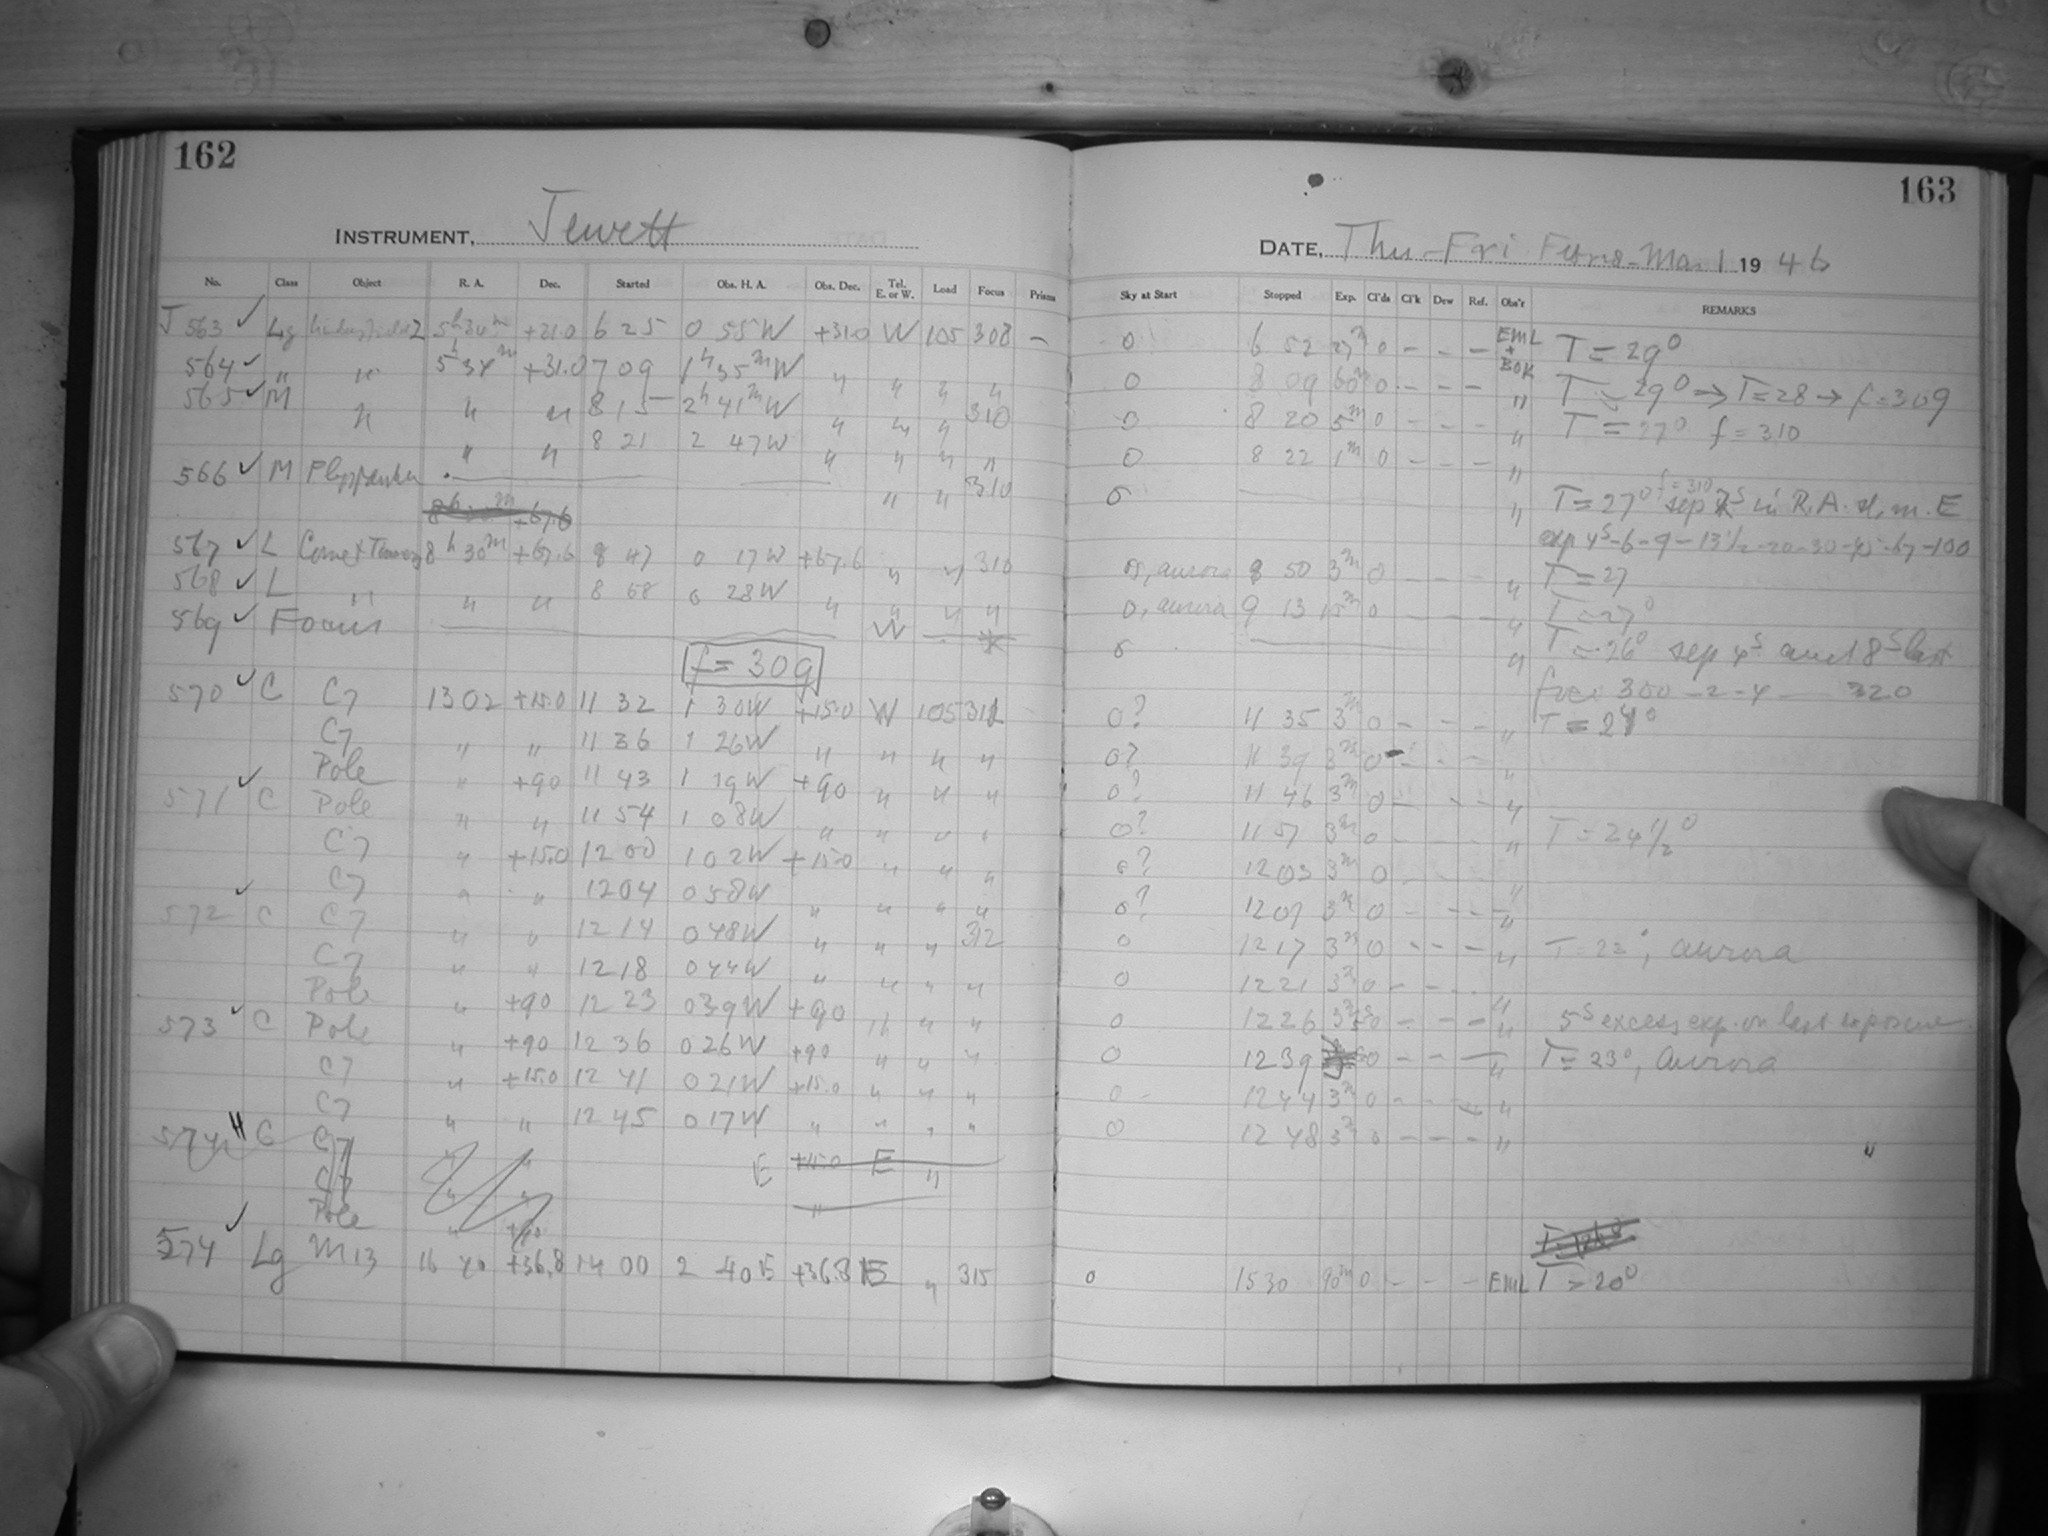 162
INSTRUMENT, Jewett
No. Class Object R. A. Dec. Started Obs. H. A. Obs. Dec. Tel. E. or W. Load Focus Prism
J 563 ✓ Lg 5h34m +31.0 6 25 0 55W +31.0 W 105 308 —
564 ✓ " " 5h34m +31.0 7 09 1h35mW " " " "
565 ✓ M " " " 8 15 2h41mW " " " 310
" " 8 21 2 47W " " " "
566 ✓ M " " 310
567 ✓ L Comet 8h30m +67.6 8 47 0 17W +67.6 " " 310
568 ✓ L " " " 8 58 0 28W " " " "
569 ✓ Focus W
f = 309
570 ✓ C C7 1302 +15.0 11 32 1 30W +15.0 W 105 312
C7 " " 11 36 1 26W " " " "
Pole " +90 11 43 1 19W +90 " " "
571 ✓ C Pole " " 11 54 1 08W " " " "
C7 " +15.0 12 00 1 02W +15.0 " " "
C7 " " 12 04 0 58W " " " "
572 ✓ C C7 " " 12 14 0 48W " " " 312
C7 " " 12 18 0 44W " " " "
Pole " +90 12 23 0 39W +90 " " "
573 ✓ C Pole " +90 12 36 0 26W +90 " " "
C7 " +15.0 12 41 0 21W +15.0 " " "
C7 " " 12 45 0 17W " " " "
574 C C7 " " E +15.0 E "
C7 " " "
Pole " +90
574 ✓ Lg M13 16 40 +36.8 14 00 2 40 E +36.8 E " 315
163
DATE, Thu-Fri Feb 28-Mar 1 19 46
Sky at Start Stopped Exp. Cl'ds Cl'k Dew Ref. Obs'r REMARKS
0 6 52 27m 0 - - - EML + BOK T = 29°
0 8 09 60m 0 - - - " T = 29° → T = 28 → f = 309
0 8 20 5m 0 - - - " T = 27° f = 310
0 8 22 1m 0 - - - "
0 " T = 27° f = 310 sep in R.A. E
exp 4s-6-9-13½-20-30-45-67-100
0, aurora 8 50 3m 0 - - - " T = 27
0, aurora 9 13 15m 0 - - - " T = 27°
0 " T = 26° sep 4s and 8s last
foci 300-2-4 — 320
0? 11 35 3m 0 - - - " T = 24°
0? 11 39 3m 0 - - - "
0? 11 46 3m 0 - - - "
0? 11 57 3m 0 " T = 24½°
0? 12 03 3m 0 "
0? 12 07 3m 0 - - - "
0 12 17 3m 0 - - - " T = 23°, aurora
0 12 21 3m 0 - - "
0 12 26 3m5s 0 - - - " 5s excess exp. on last exposure
0 12 39 0 - - - " T = 23°, aurora
0 12 44 3m 0 - - - "
0 12 48 3m 0 - - - "
"
0 15 30 90m 0 - - - EML T = 20°